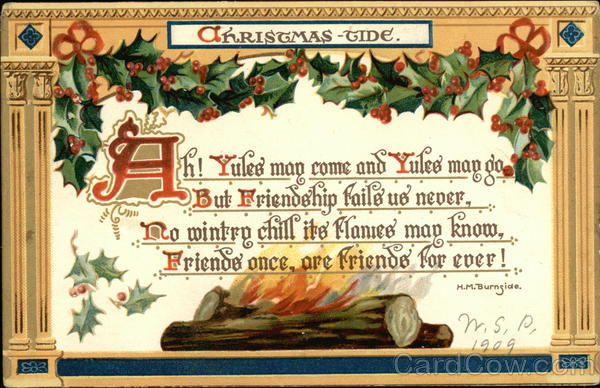 Christmas-tide.
Ah! Yules may come and Yules may go,
But Friendship fails us never,
No wintry chill its flames may know,
Friends once, are friends for ever!
H.M.Burnside.
W. S. P.
1909
CardCow.com